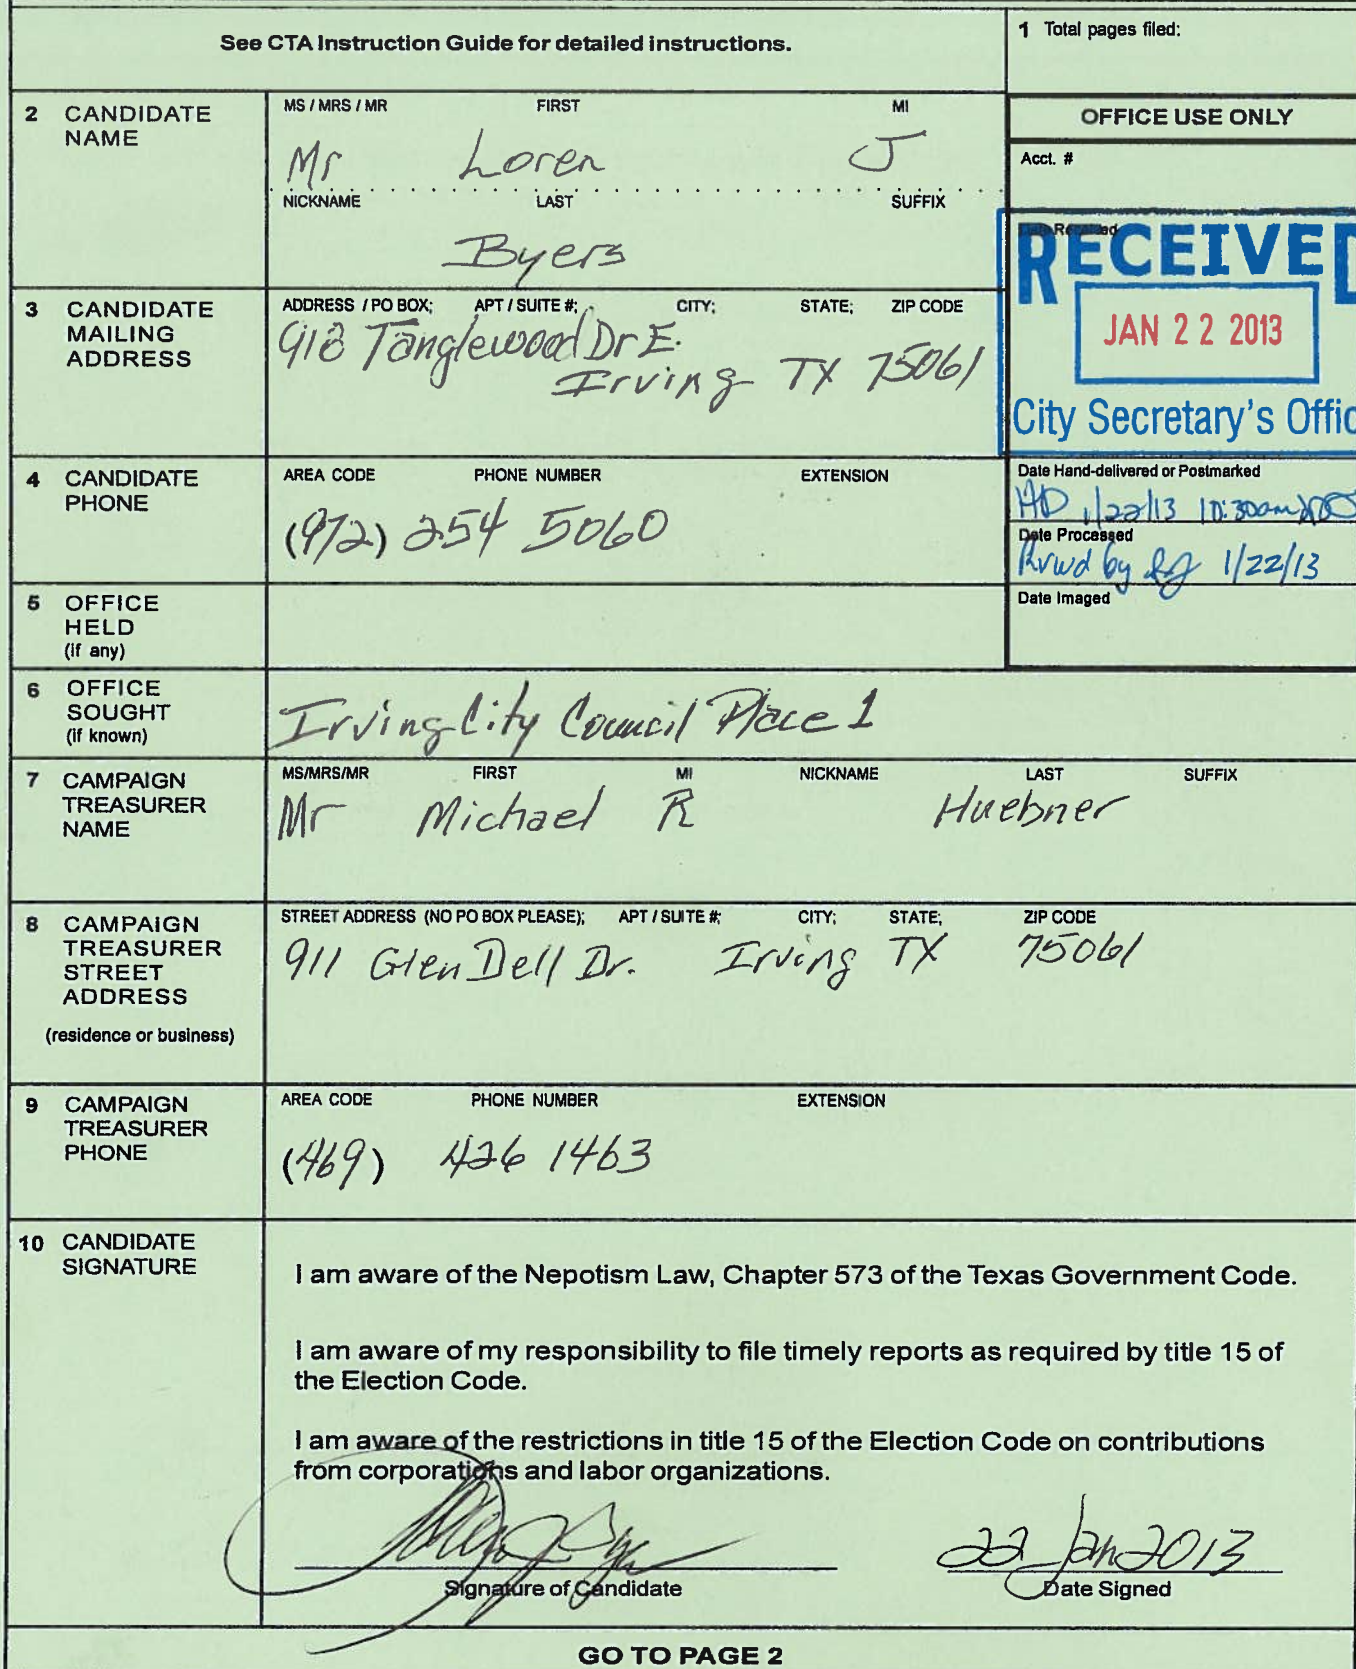 See CTA Instruction Guide for detailed instructions.
1 Total pages filed:
2 CANDIDATE NAME
MS / MRS / MR FIRST MI
Mr Loren J
NICKNAME LAST SUFFIX
Byers
OFFICE USE ONLY
Acct. #
Date Received
RECEIVED
JAN 22 2013
City Secretary's Offic
3 CANDIDATE MAILING ADDRESS
ADDRESS / PO BOX; APT / SUITE #; CITY; STATE; ZIP CODE
918 Tanglewood Dr E.
Irving TX 75061
4 CANDIDATE PHONE
AREA CODE PHONE NUMBER EXTENSION
(972) 254 5060
Date Hand-delivered or Postmarked
HD 1/22/13 10:30am
Date Processed
Rvwd by 1/22/13
Date Imaged
5 OFFICE HELD (if any)
6 OFFICE SOUGHT (if known)
Irving City Council Place 1
7 CAMPAIGN TREASURER NAME
MS/MRS/MR FIRST MI NICKNAME LAST SUFFIX
Mr Michael R Huebner
8 CAMPAIGN TREASURER STREET ADDRESS
(residence or business)
STREET ADDRESS (NO PO BOX PLEASE); APT / SUITE #; CITY; STATE; ZIP CODE
911 Glen Dell Dr. Irving TX 75061
9 CAMPAIGN TREASURER PHONE
AREA CODE PHONE NUMBER EXTENSION
(469) 426 1463
10 CANDIDATE SIGNATURE
I am aware of the Nepotism Law, Chapter 573 of the Texas Government Code.
I am aware of my responsibility to file timely reports as required by title 15 of
the Election Code.
I am aware of the restrictions in title 15 of the Election Code on contributions
from corporations and labor organizations.
22 Jan 2013
Signature of Candidate Date Signed
GO TO PAGE 2